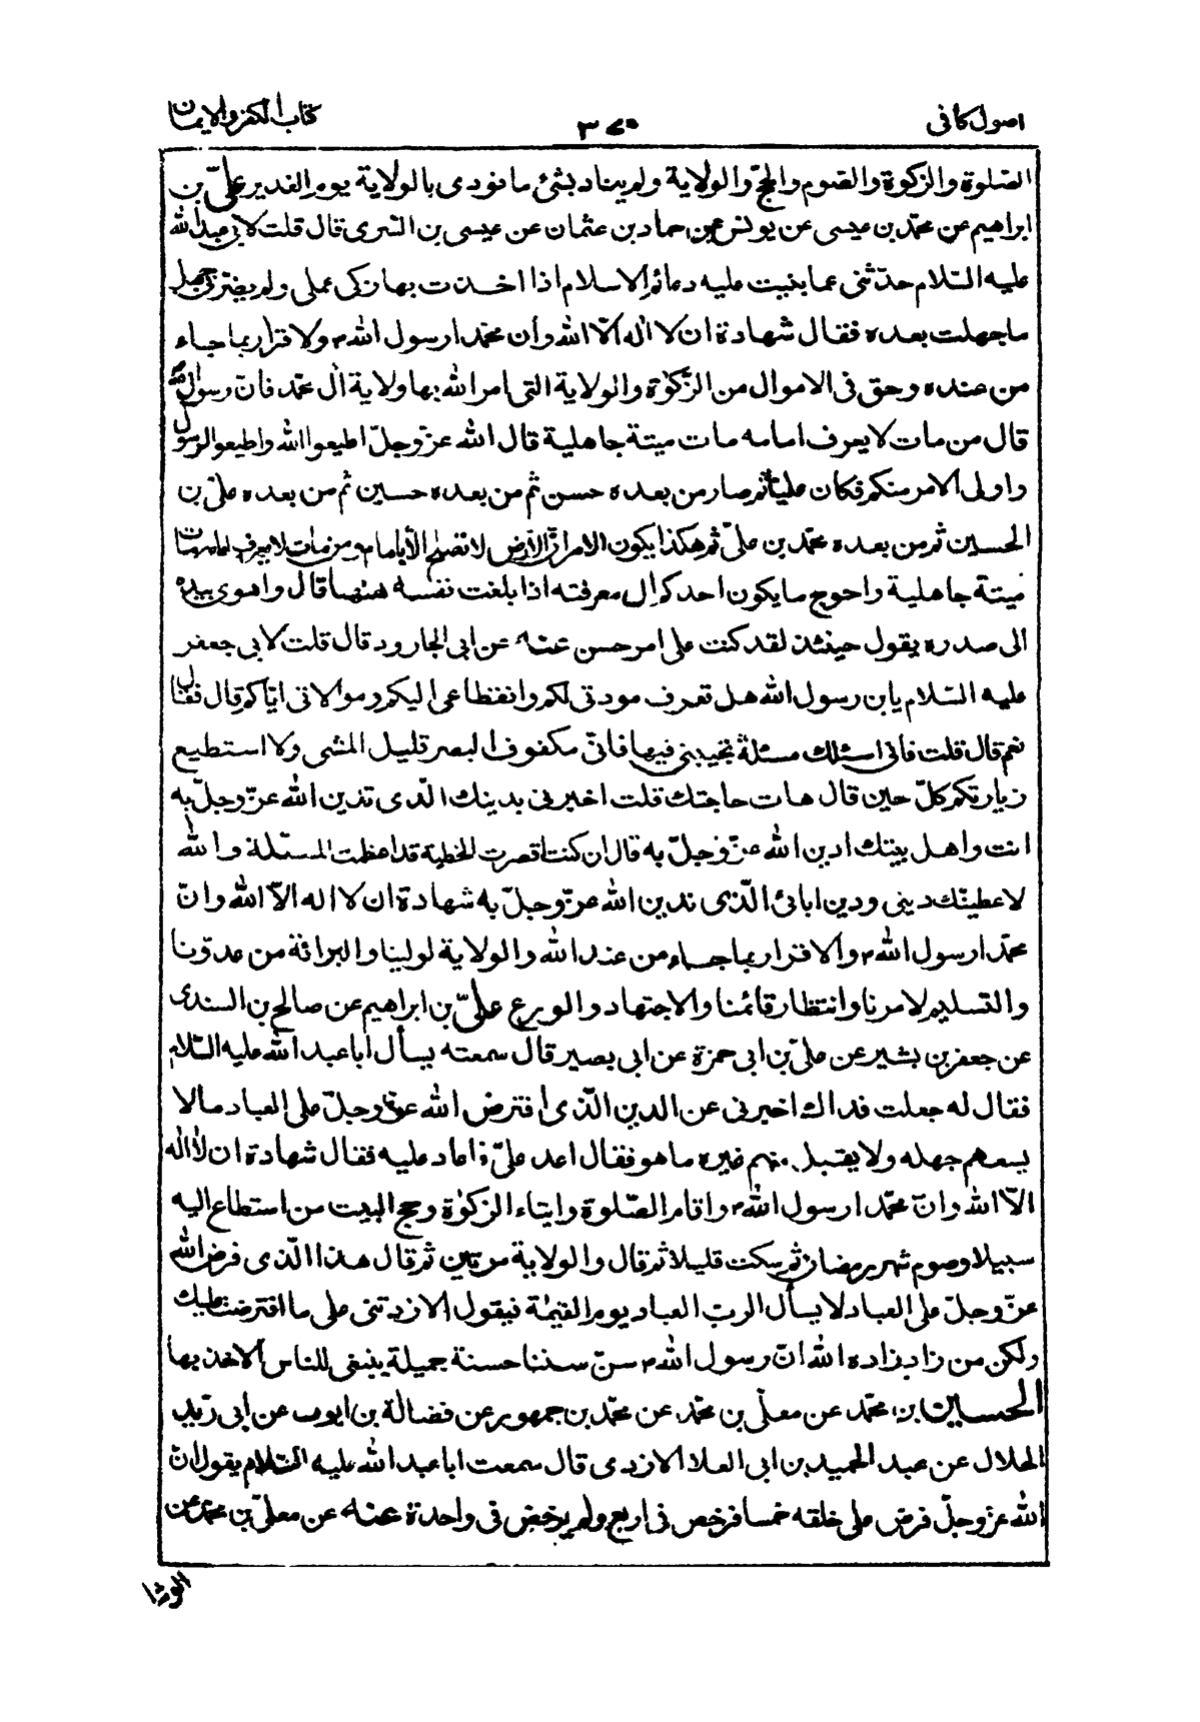 اصول کافی
۳۷۰
کتاب الکفر والایمان
الصّلوة والزکوة والصّوم والحجّ والولایة ولم یناد بشیٔ ما نودی بالولایة یوم الغدیر علیّ بن
ابراهیم عن محمّد بن عیسی عن یونس عن حماد بن عثمان عن عیسی بن السّری قال قلت لابی عبدالله
علیه السّلام حدّثنی عما بنیت علیه دعائم الاسلام اذا اخذت بها زکی عملی ولم یضرّنی جهل
ما جهلت بعده فقال شهادة ان لا اله الّا الله وأن محمّدا رسول الله ص والاقرار بما جاء
من عنده وحق فی الاموال من الزّکوة والولایة التی امر الله بها ولایة آل محمّد فانّ رسول الله
قال من مات لا یعرف امامه مات میتة جاهلیة قال الله عزّ وجلّ اطیعوا الله واطیعوا الرسول
واولی الامر منکم فکان علیّا ثم صار من بعده حسن ثم من بعده حسین ثم من بعده علیّ بن
الحسین ثم من بعده محمّد بن علیّ ثم هکذا یکون الامر انّ الأرض لا تصلح الّا بامام ومن مات لا یعرف امامه مات
میتة جاهلیة واحوج ما یکون احدکم الی معرفته اذا بلغت نفسه ههنا قال واهوی بیده
الی صدره یقول حینئذ لقد کنت علی امر حسن عنه عن ابی الجارود قال قلت لابی جعفر
علیه السّلام یا بن رسول الله هل تعرف مودتی لکم وانقطاعی الیکم وموالاتی ایّاکم قال فقال
نعم قال قلت فانی اسئلك مسئلة تجیبنی فیها فانّی مکفوف البصر قلیل المشی ولا استطیع
زیارتکم کلّ حین قال هات حاجتك قلت اخبرنی بدینك الّذی تدین الله عزّ وجلّ به
انت واهل بیتك ادین الله عزّ وجلّ به قال ان کنت اقصرت الخطبة قد اعظمت المسئلة والله
لاعطینّك دینی ودین ابائی الّذی ندین الله عزّ وجلّ به شهادة ان لا اله الّا الله وانّ
محمّدا رسول الله ص والاقرار بما جاء من عند الله والولایة لولینا والبرائة من عدوّنا
والتسلیم لامرنا وانتظار قائمنا والاجتهاد والورع علیّ بن ابراهیم عن صالح بن السندی
عن جعفر بن بشیر عن علیّ بن ابی حمزة عن ابی بصیر قال سمعته یسأل ابا عبد الله علیه السّلام
فقال له جعلت فداك اخبرنی عن الدین الّذی افترض الله عزّ وجلّ علی العباد ما لا
یسعهم جهله ولا یقبل منهم غیره ما هو فقال اعد علیّ فاعاد علیه فقال شهادة ان لا اله
الّا الله وانّ محمّدا رسول الله ص واقام الصّلوة وایتاء الزکوة وحج البیت من استطاع الیه
سبیلا وصوم شهر رمضان ثم سکت قلیلا ثم قال والولایة مرتین ثم قال هذا الّذی فرض الله
عزّ وجلّ علی العباد لا یسأل الرب العباد یوم القیمة فیقول الا زدتنی علی ما افترضت علیك
ولکن من زاد زاده الله انّ رسول الله ص سنّ سننا حسنة جمیلة ینبغی للناس الاخذ بها
الحسین بن محمّد عن معلّی بن محمّد عن محمّد بن جمهور عن فضالة بن ایوب عن ابی زید
الحلال عن عبد الحمید بن ابی العلا الازدی قال سمعت ابا عبد الله علیه السّلام یقول انّ
الله عز وجلّ فرض علی خلقه خمسا فرخص فی اربع ولم یرخض فی واحدة عنه عن معلیّ بن محمّد عن
الوشا